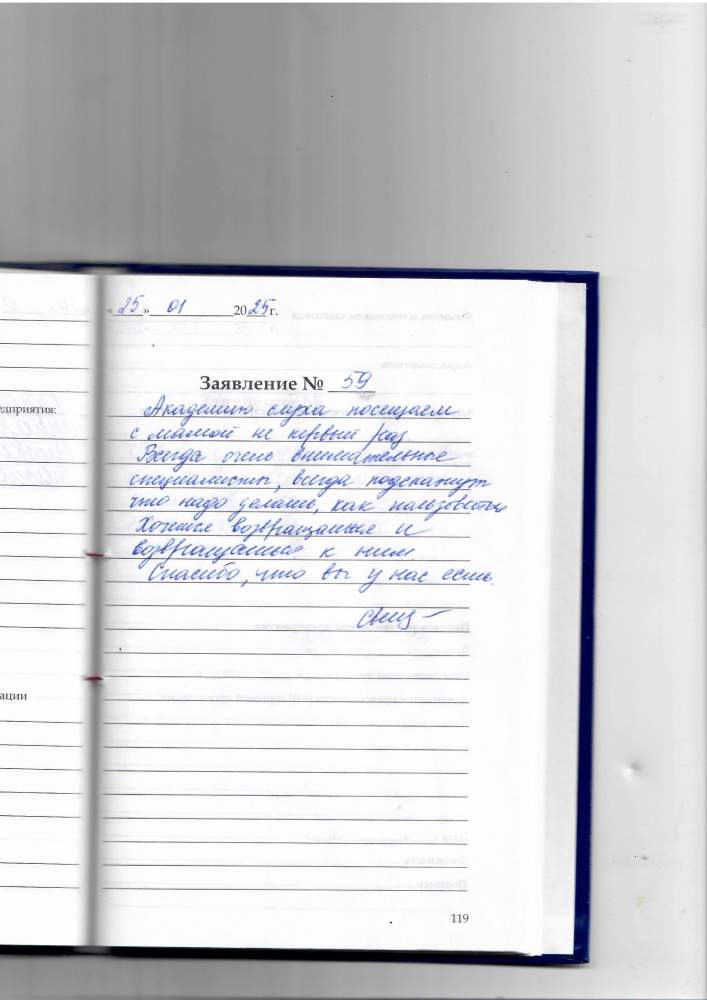 «25» 01 2025г.
Заявление № 59
едприятия:
Академию слуха посещаем
с мамой не первый раз
Всегда очень внимательные
специалисты, всегда подскажут
что надо делать, как пользоваться
Хочется возвращаться и
возвращаться к ним
Спасибо, что вы у нас есть.
ации
119